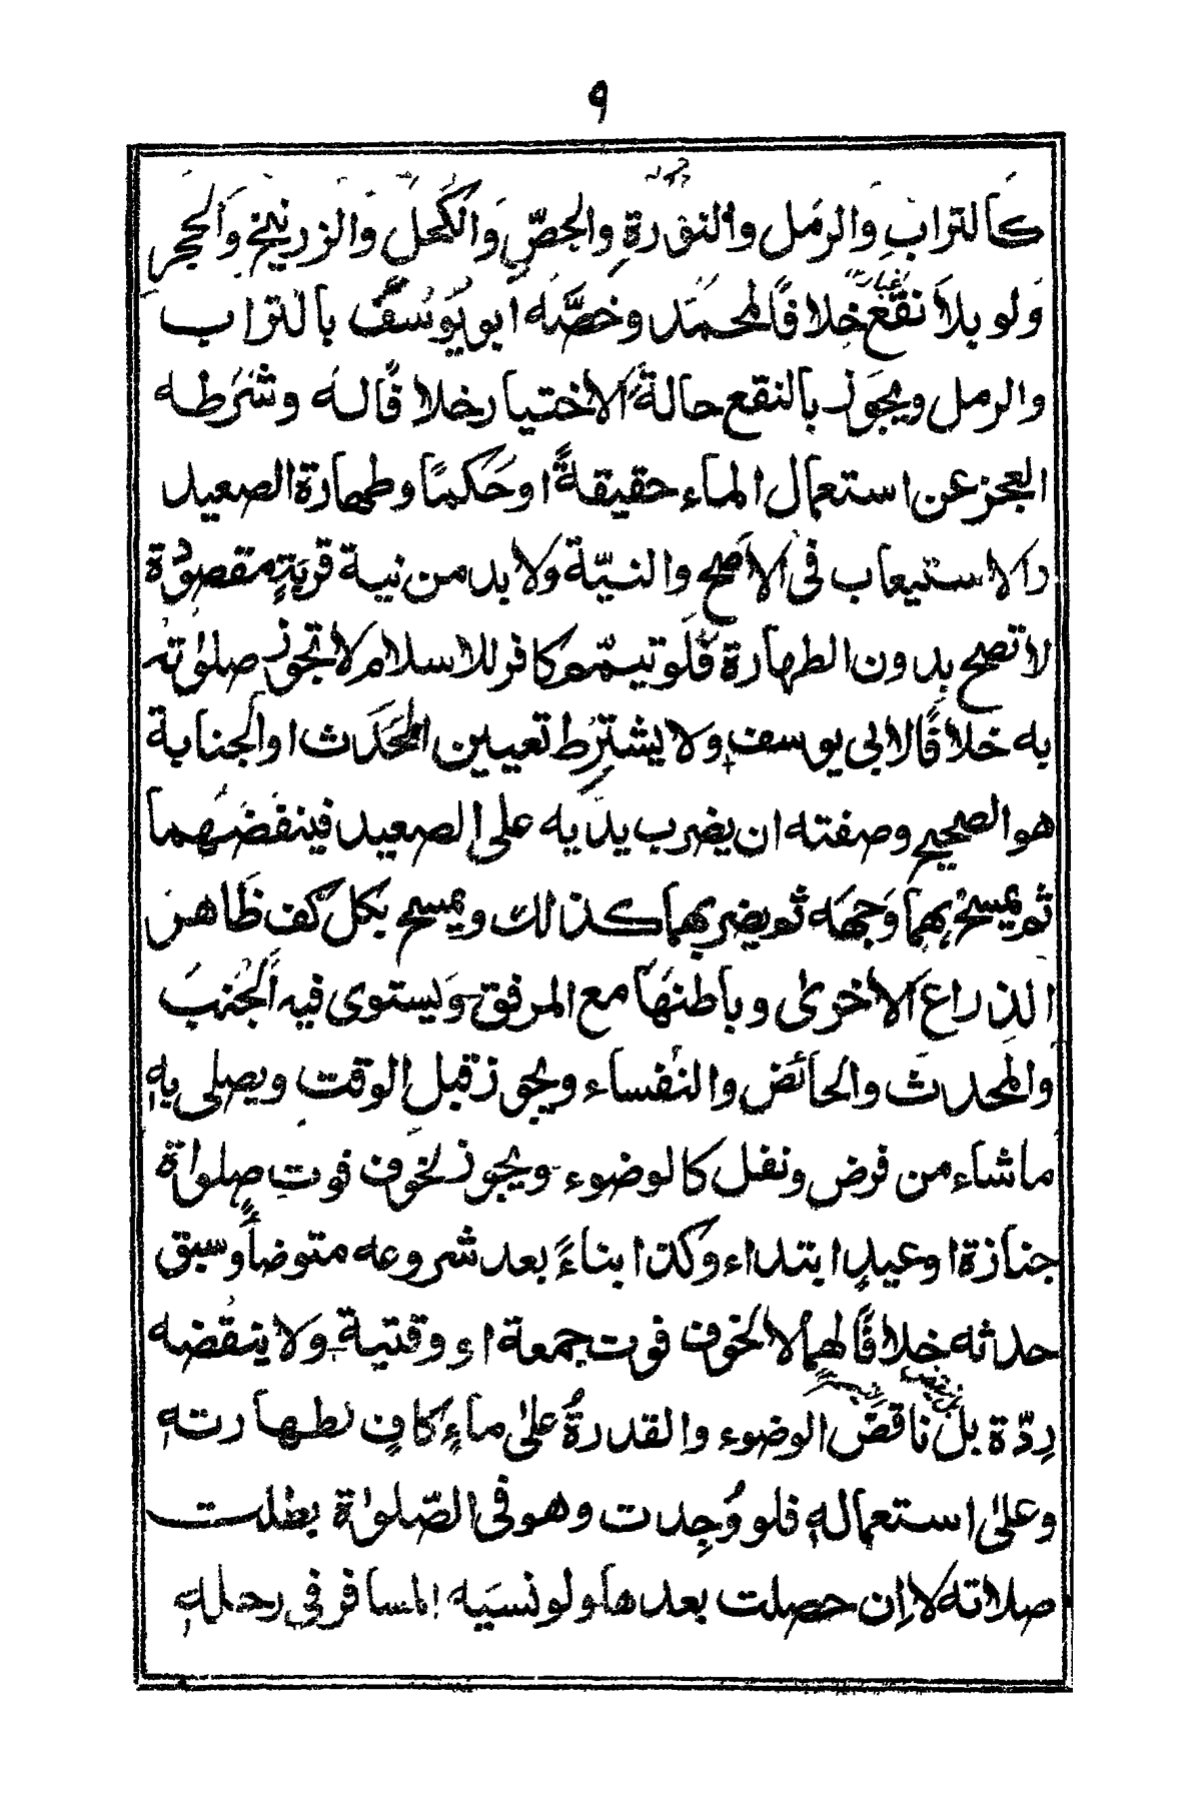 ٩
كَالترابِ وَالرمل والنورةِ والجصِّ وَالكُحلِ وَالزرنيخِ وَالحجرِ
وَلو بلاَ نقعٍ خِلافًا لمحمّد وخصَّهُ ابو يُوسُفَ بالتراب
والرمل ويجوز بالنقع حالةَ الاختيار خلافًا لهُ وشَرطه
العجز عن استعمال الماء حقيقةً او حُكمًا وطهارة الصعيد
والاستيعاب فى الاَصَحِّ والنيّة وَلا بد من نية قربَةٍ مقصودة
لا تصح بِدون الطهارة فَلَو تيمّم كافر للاسلام لا تجوز صلوٰتهُ
به خلافًا لابى يوسف ولا يُشترط تعيين المحَدَث او الجنابة
هو الصحيح وصفته ان يضرب يدَيه على الصعيد فينفضَهُما
ثم يمسح بِهِما وَجهَه ثم يضربهما كذلك ويمسح بكل كف ظَاهرَ
الذِراعَ الاخرىٰ وباطنَهَا مع المرفق وَيستوى فيه الجُنبَ
والمحدث والحائض والنفساء ويجوز قبل الوقت ويصلى بِهٖ
ما شاء من فرض ونفل كالوضوء ويجوز لخوف فوتِ صلوٰة
جنازة او عيدٍ ابتداء وكذا بناءً بعد شروعه متوضأً وسبق
حدثه خِلافًا لهما لا لخوف فوت جمعة او وقتية ولا ينقُضه
رِدّة بل ناقضُ الوضوء والقدرةُ على ماءٍ كافٍ لطهارتهٖ
وعلى استعمالهٖ فلو وُجِدت وهو فى الصّلوٰة بطلت
صلاته لا اِن حصلت بعدها ولو نَسيَه المسافر فى رحلهٖ